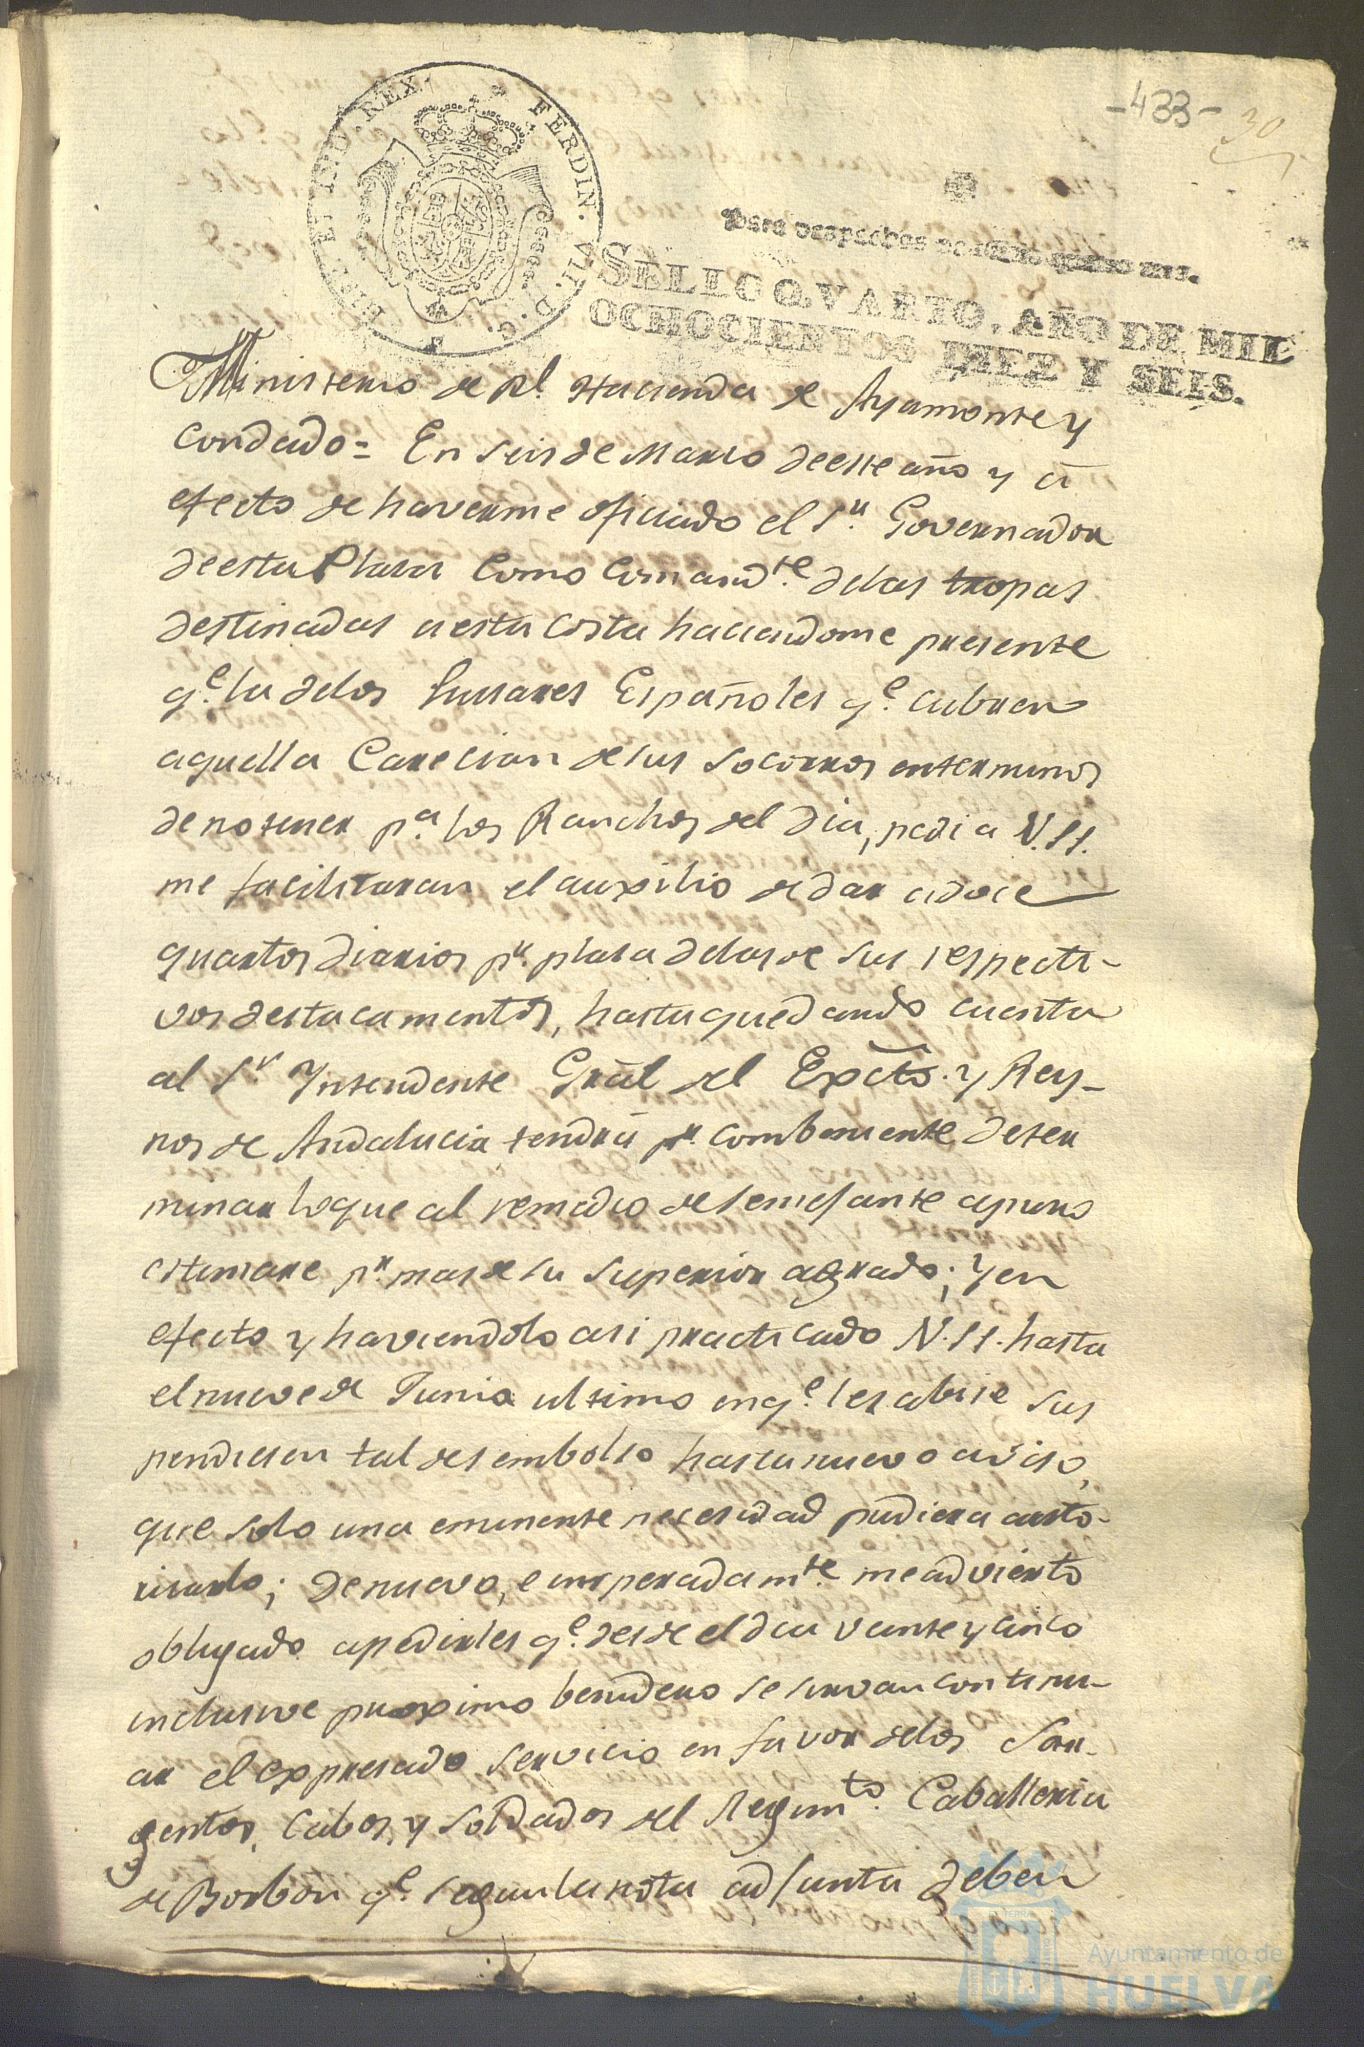 -433- 30
HISP. ET IND. REX. FERDIN. VII. D. G.
Para despachos de oficio quatro mrs.
SELLO QVARTO, AÑO DE MIL
OCHOCIENTOS DIEZ Y SEIS.
Ministerio de Rl. Hacienda de Ayamonte y
Condado = En seis de Marzo de este año y á
efecto de haverme oficiado el Sr. Governador
de esta Plaza como Comandte. delas tropas
destinadas a esta costa haciendome presente
qe. la delos Hussares Españoles qe. cubren
aquella Carecian de sus socorros en terminos
de no tener pa. los Ranchos del dia, pedi a V.SS.
me facilitaran el auxilio de dar a doce
quartos diarios pr. plaza delas de sus respecti-
vos destacamentos, hasta que dando cuenta
al Sr. Yntendente Grál del Exto. y Rey-
nos de Andalucia tendrá pr. combeniente deter
minar lo que al remedio de semejante apuro
estimare pr. mas de su superior agrado; y en
efecto y haviendolo asi practicado V.SS. hasta
el nueve de Junio ultimo en qe. les abisé sus
pendiesen tal desembolso hasta nuevo aviso,
que solo una eminente necesidad pudiera auto-
rizarlo; de nuevo, e ynsperadamte. me advierto
obligado a pedirles qe. desde el dia veinte y cinco
inclusive proximo benidero se sirvan continu-
ar el expresado servicio en favor delos Sar-
gentos, Cabos, y Soldados del Regimto. Caballeria
de Borbon qe. segun la nota adjunta deben
Ayuntamiento de
HUELVA